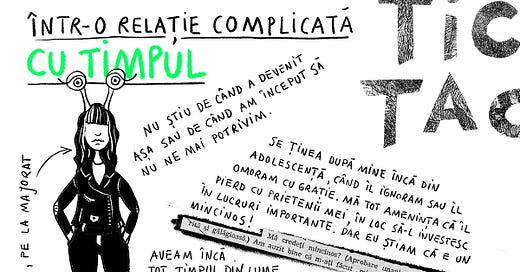 ÎNTR-O RELAȚIE COMPLICATĂ
CU TIMPUL
TIC
TAC
NU ȘTIU DE CÂND A DEVENIT
AȘA SAU DE CÂND AM ÎNCEPUT SĂ
NU NE MAI POTRIVIM.
, PE LA MAJORAT
SE ȚINEA DUPĂ MINE ÎNCĂ DIN
ADOLESCENȚĂ, CÂND ÎL IGNORAM SAU ÎL
OMORAM CU GRAȚIE. MĂ TOT AMENINȚA CĂ ÎL
PIERD CU PRIETENII MEI, ÎN LOC SĂ-L INVESTESC
ÎN LUCRURI IMPORTANTE. DAR EU ȘTIAM CĂ E UN
MINCINOS!
și gălăgioasă.) Mă credeți mincinos? (Aprobare
Am auzit bine că m-ați făcut
AVEAM ÎNCĂ
TOT TIMPUL DIN LUME